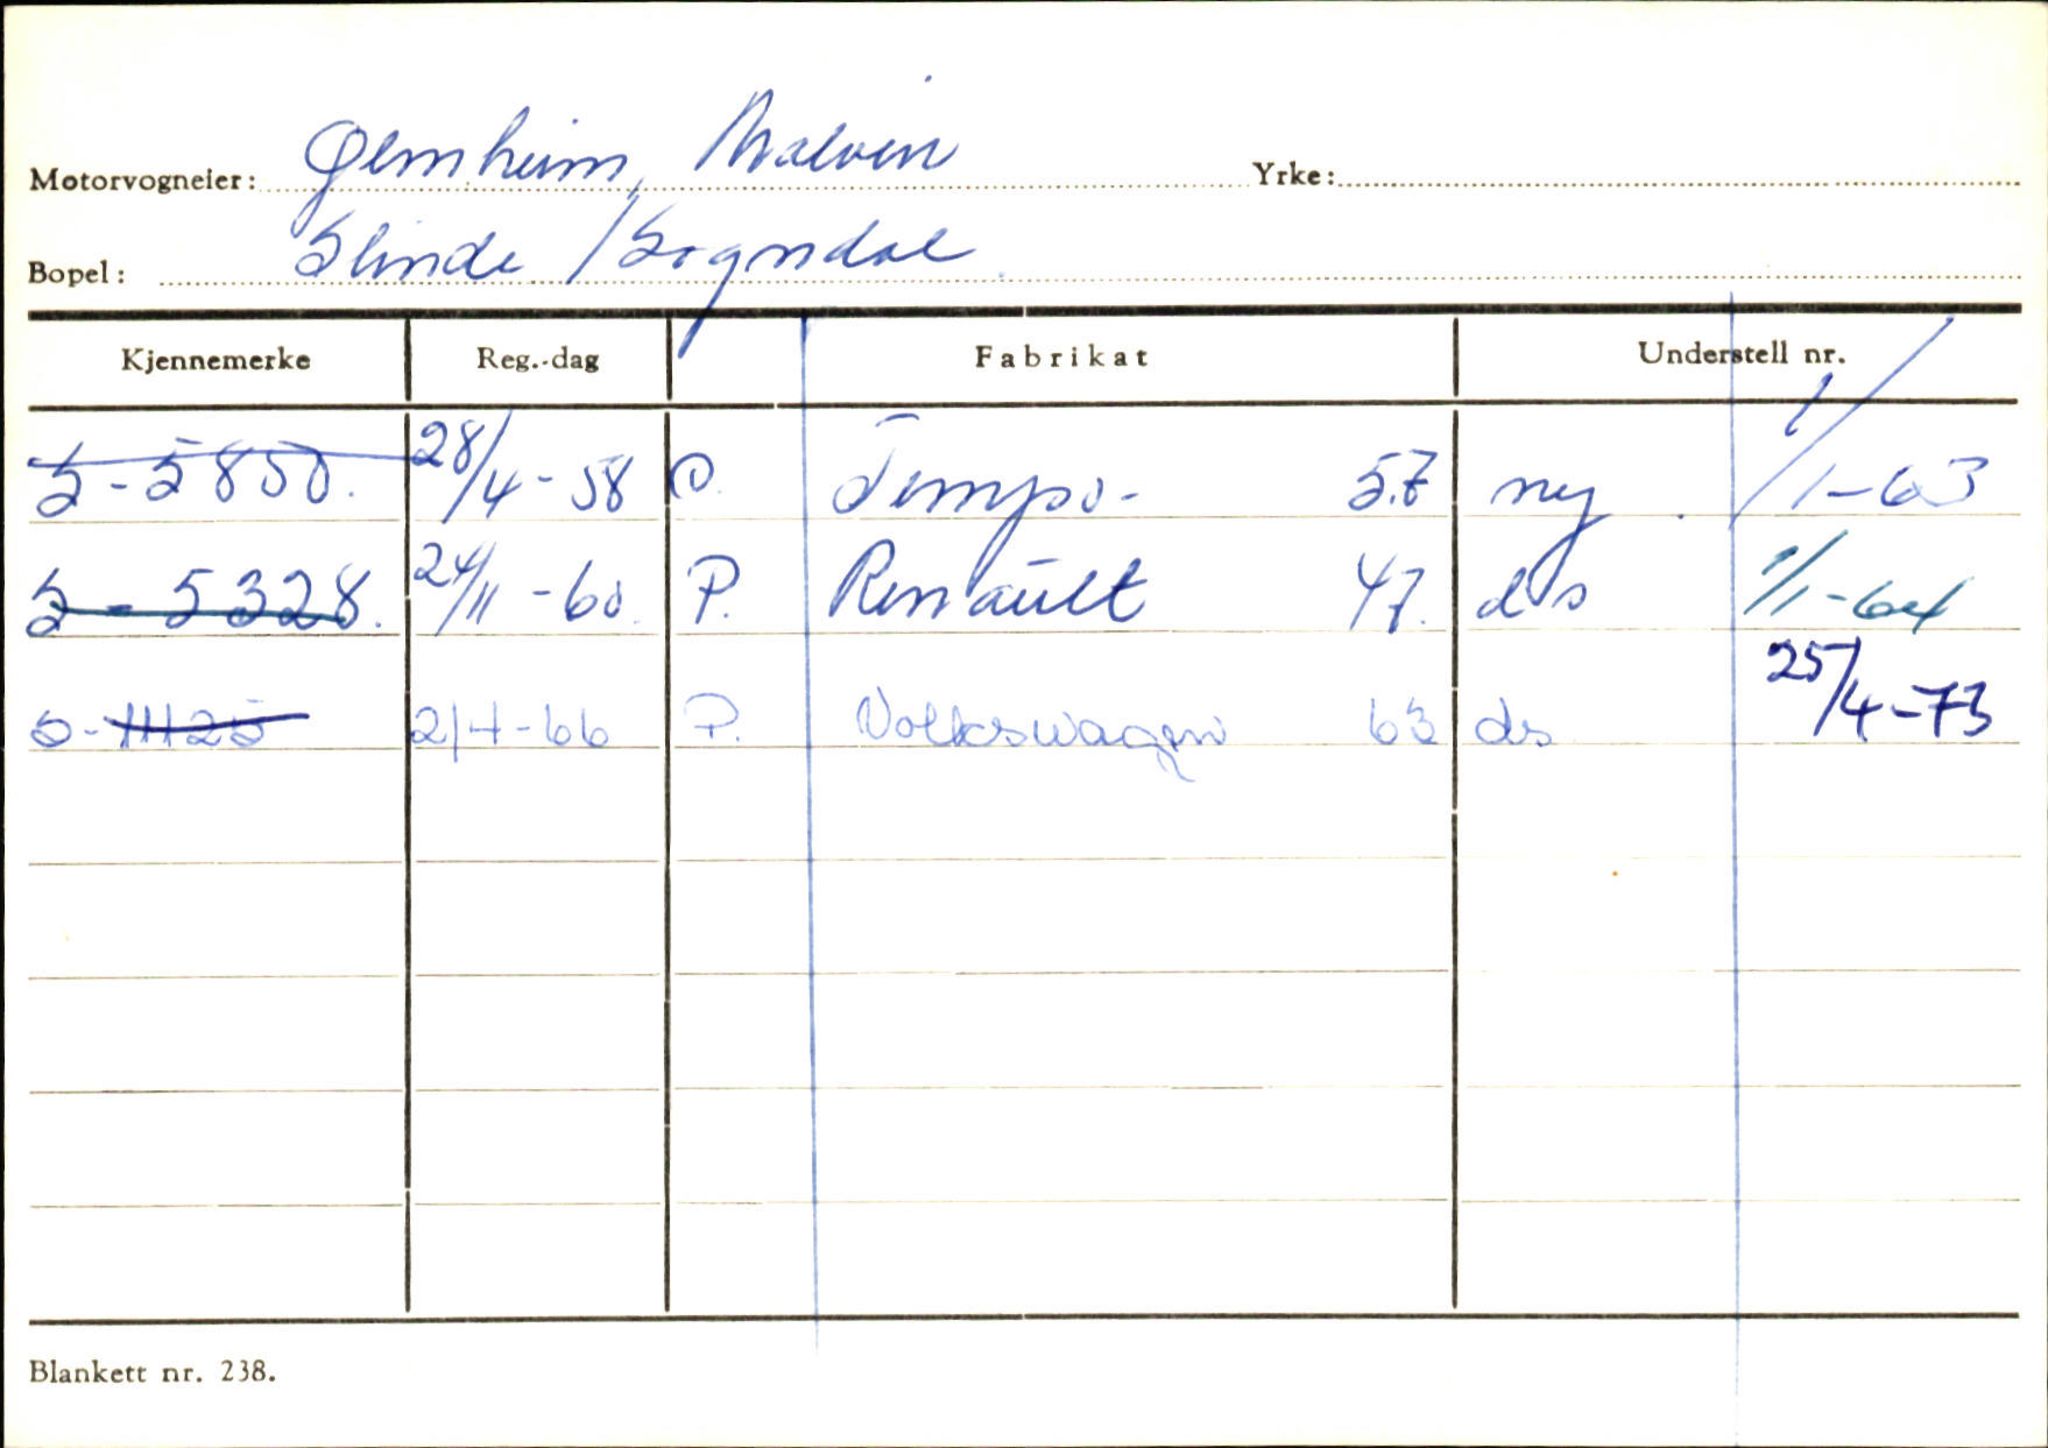 Motorvogneier: Ølmheim, Malvin Yrke:
Bopel: Slinde / Sogndal
Kjennemerke Reg.-dag Fabrikat Understell nr.
S-5850. 28/4-58 P. Tempo- 57 ny. 1/1-63
S-5328. 24/11-60. P. Renault 47. ds 1/1-64
S-11125 2/4-66 P. Volkswagen 63 ds 25/4-73
Blankett nr. 238.